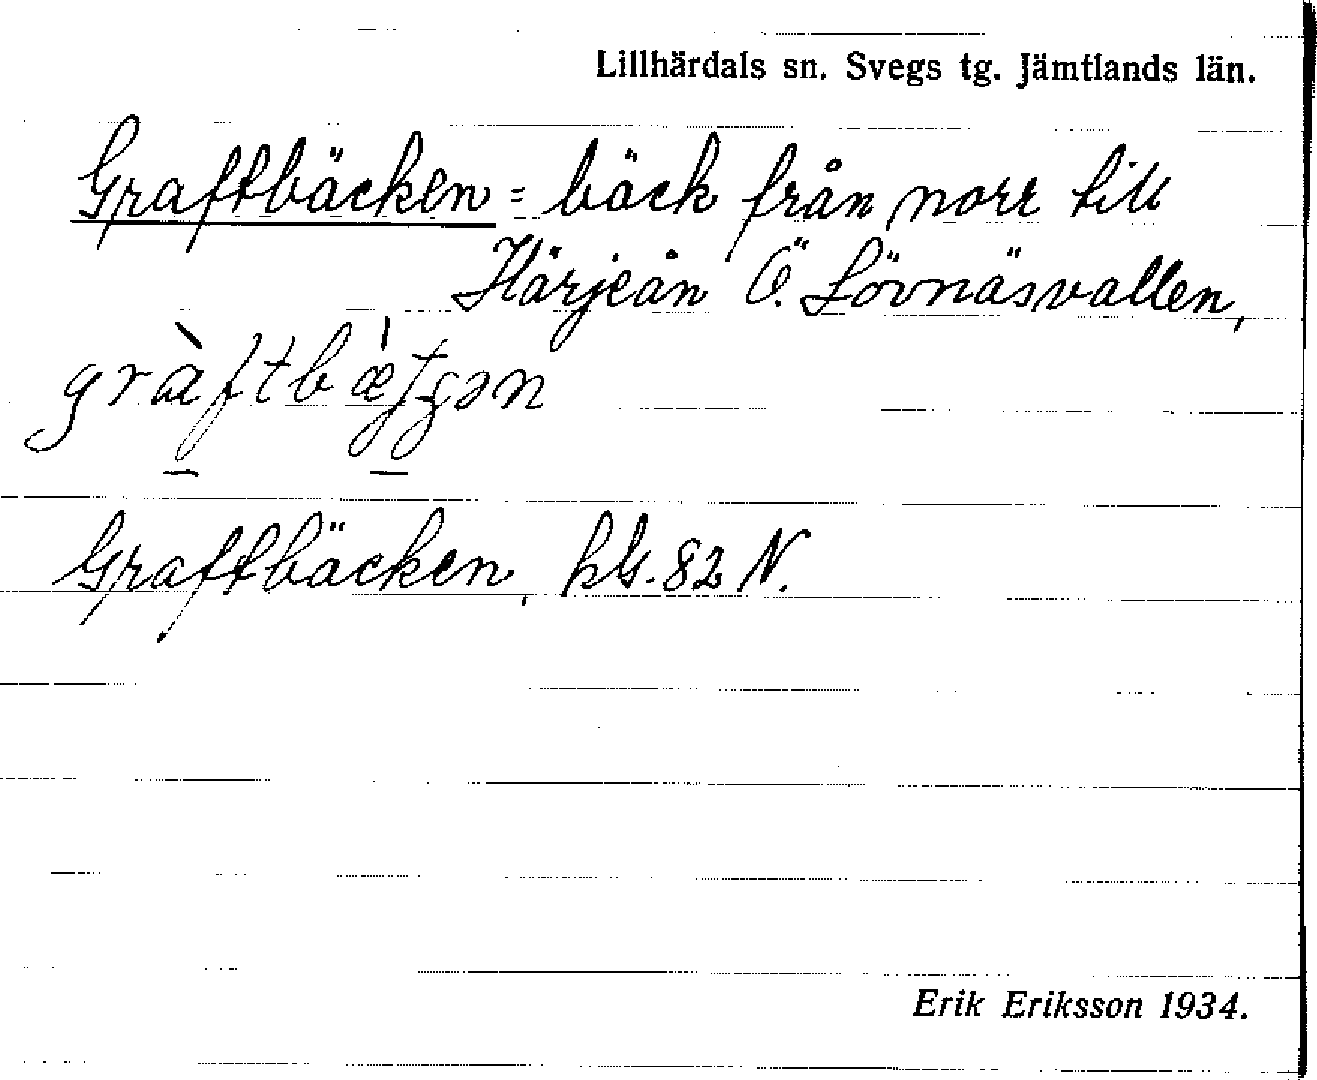 Lillhärdals sn. Svegs tg. Jämtlands län.
Graftbäcken = bäck från norr till
Härjeån Ö. Lövnäsvallen,
Graftbäcken, kbl. 82 N.
Erik Eriksson 1934.